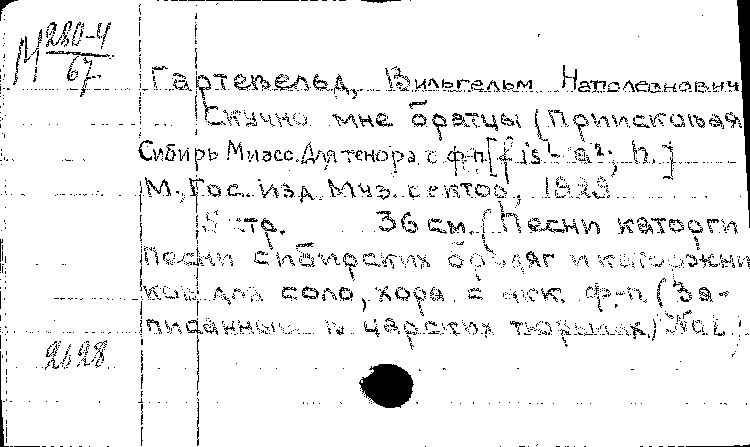 М 280-4
67
Гартевельд, Вильгельм Наполеонович
Скучно мне братцы (Приисковая
Сибирь Миасс. Для тенора с ф.п. [fis¹- a²; h.]
М., Гос. изд. Муз. сектор, 1923
5 стр. 36 см. (Песни каторги
Песни сибирских бродяг и каторжни
ков для соло, хора с акк. ф.-п (За-
писанные в царских тюрьмах)
2628